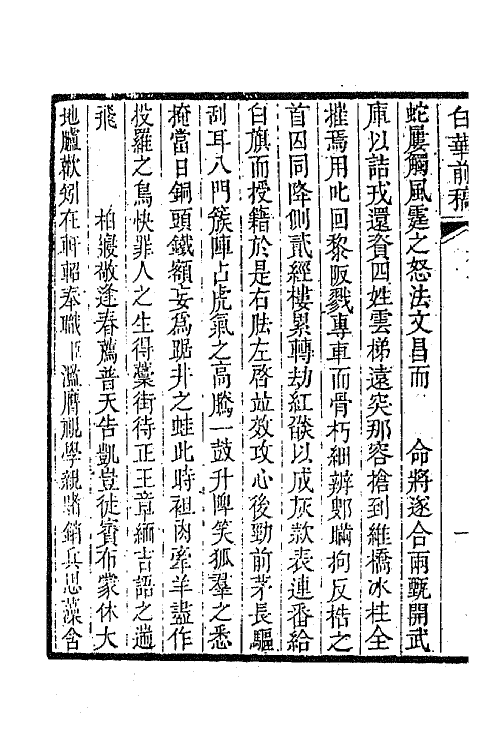 白華前稿
一
蛇屢觸風霆之怒法文昌而　命將逐合兩甄開武
庫以詰戎還資四姓雲梯遠突那容搶到維橋冰柱全
摧焉用叱回黎阪戮專車而骨朽細辨鄋瞞狗反梏之
首囚同降側貳經樓累轉劫紅燄以成灰款表連番給
白旗而授籍於是右胠左啓竝效攻心後勁前茅長驅
刮耳八門簇陣占虎氣之高騰一鼓升陴笑狐羣之悉
掩當日銅頭鐵額妄爲踞井之蛙此時袒肉牽羊盡作
投羅之鳥快罪人之生得藁街待正王章緬吉語之遄
飛　柏寢敬逢春薦普天告凱豈徒賚布蒙休大
地臚歡矧在軒軺奉職臣濫膺視學親睹銷兵思藻舍